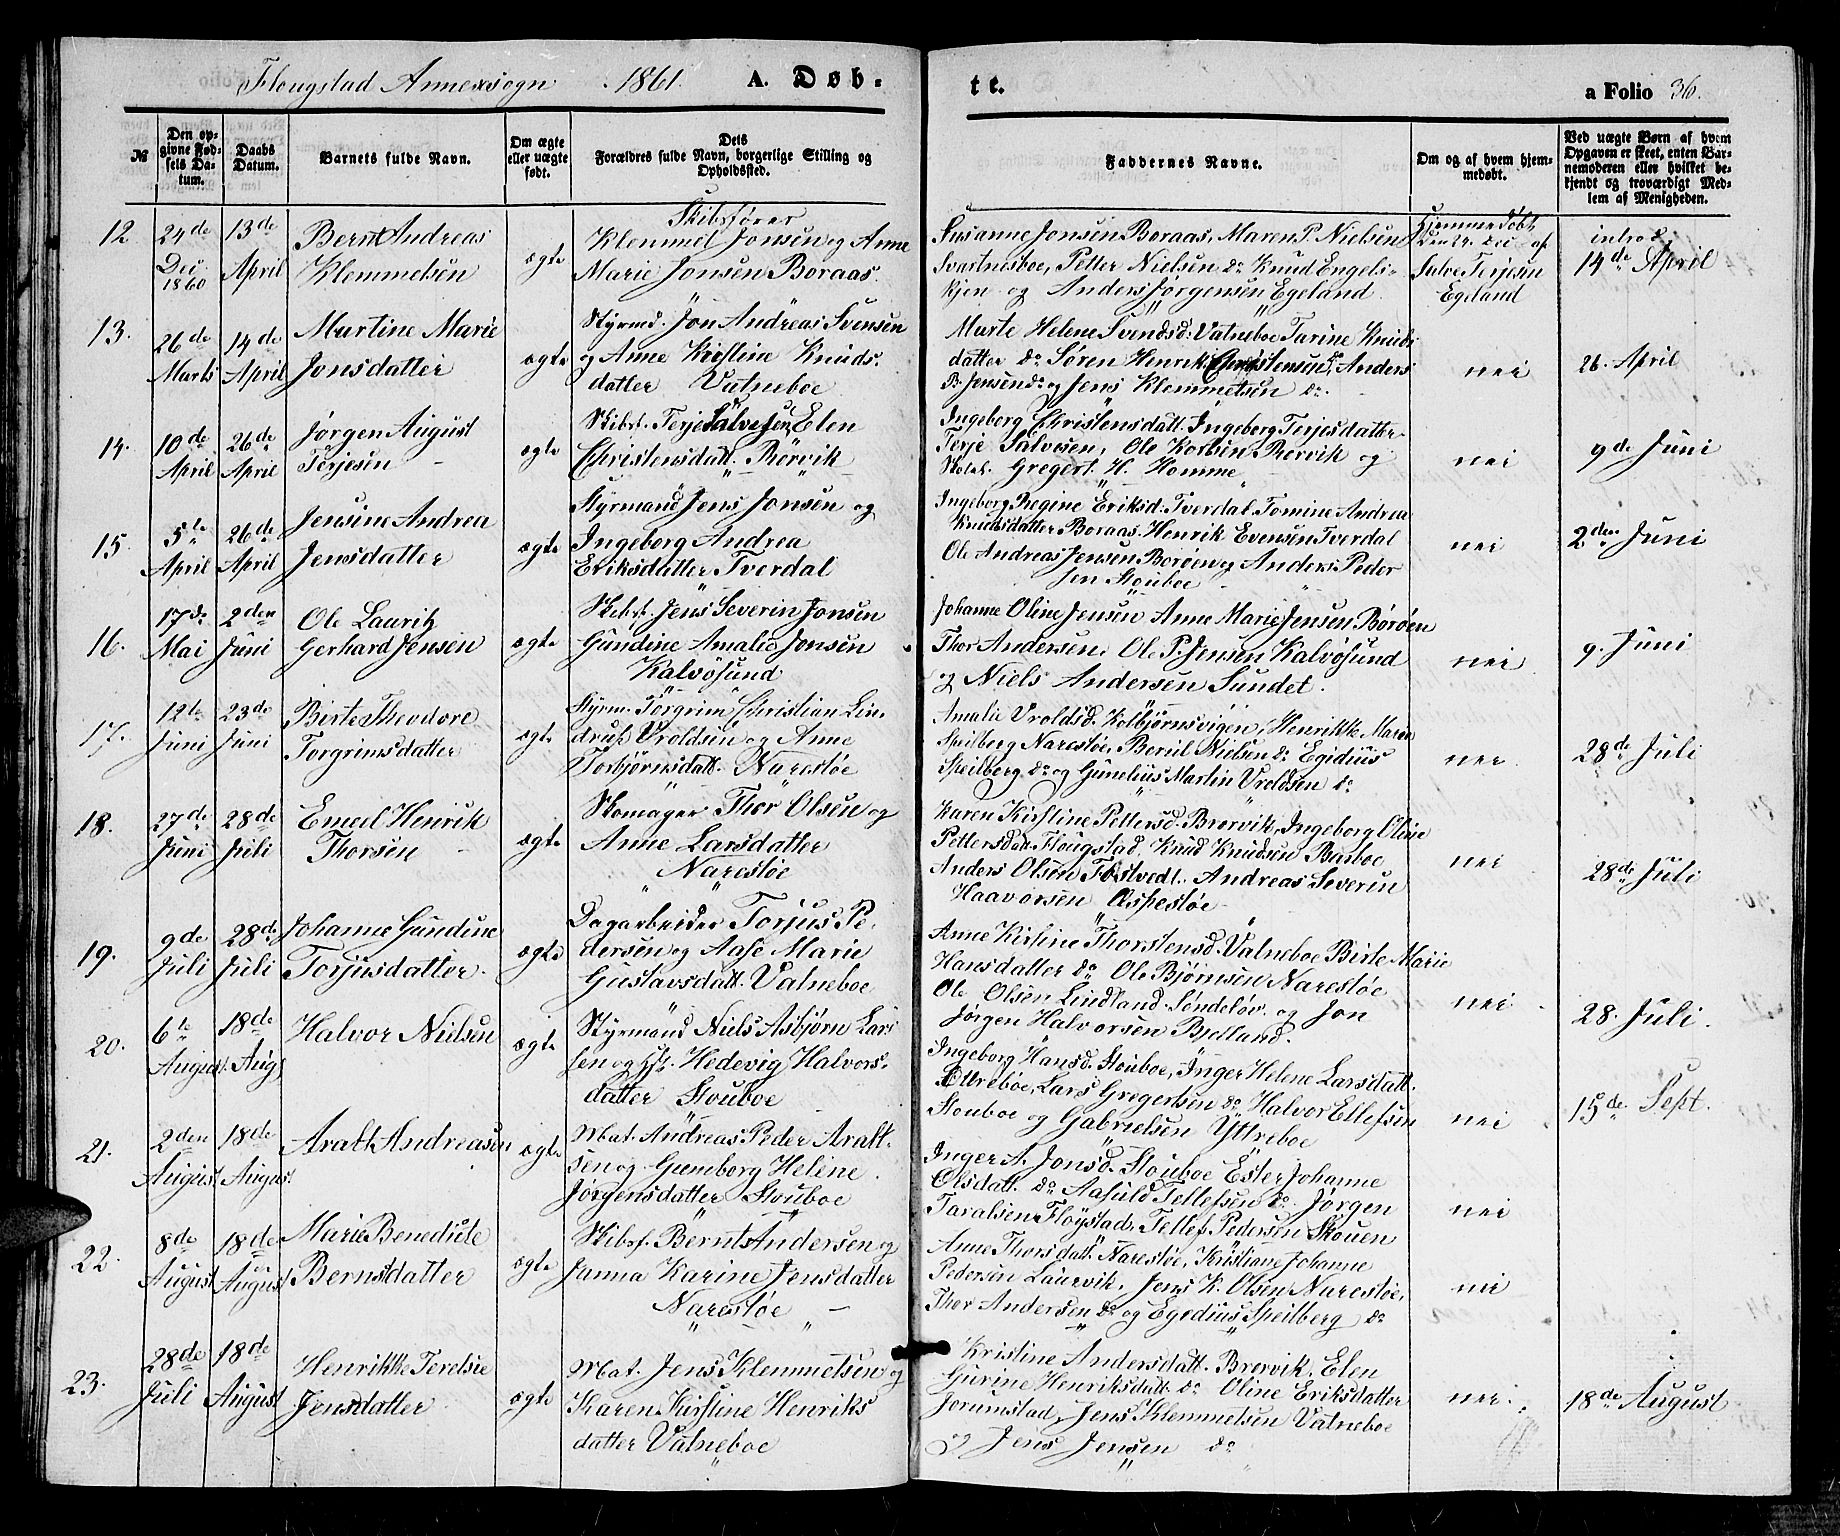 Flougstad Annexsogn 1861. A. Døb-
te. a Folio 36.
№
Den op-
givne Fød-
sels Da-
tum.
Daabs
Datum.
Barnets fulde Navn.
Om ægte
eller uægte
født.
Dets
Forældres fulde Navn, borgerlige Stilling og
Opholdssted.
Faddernes Navne.
Om og af hvem hjem-
medøbt.
Ved uægte Børn af hvem
Opgaven er skeet, enten Bar-
nemoderen eller hvilket be-
kjendt og troværdigt Med-
lem af Menigheden.
12
24de
Dec
1860
13de
April
Bernt Andreas
Klemmetsen
ægte
Skibsfører
Klemmet Jonsen og Anne
Marie Jonsen Boraas.
Susanne Jonsen Boraas, Maren P. Nielsen
Svartnesboe, Petter Nielsen do Knud Engels-
kjen og Anders Jørgensen Egeland.
Hjemmedøbt
den 24. Dec. af
Salve Terjesen
Egeland
introd
14de April
13.
26de
Marts
14de
April
Martine Marie
Jonsdatter
ægte
Styrmd. Jon Andreas Svensen
og Anne Kirstine Knuds-
datter Vatneboe
Marte Helene Svendsd. Vatneboe Tarine Knuds
datter do Søren Henrik Christensen do, Anders
P. Jensen do og Jens Klemmetsen do.
nei
26. April
14.
10de
April
26de
April
Jørgen August
Terjesen
ægte
Skibsf. Terje Salvesen, Elen
Christensdatt. Rørvik
Ingeborg Christensdatt. Ingeborg Terjesdatter
Terje Salvesen, Ole Korbsen Rørvik og
Skolel. Gregert H. Homme
nei
9de Juni
15.
5te
April
26de
April
Jensine Andrea
Jensdatter
ægte
Styrmand Jens Jonsen og
Ingeborg Andrea
Eriksdatter Tverdal
Ingeborg Regine Eriksd. Tverdal Tomine Andrea
Knudsdatter Boraas. Henrik Evensen Tverdal
Ole Andreas Jensen Borøen og Anders Peder
sen Stouboe
nei
2den Juni
16.
17de
Mai
2den
Juni
Ole Lauritz
Gerhard Jensen
ægte
Skibsf. Jens Severin Jonsen
Gundine Amalie Jonsen
Kalvøsund
Johanne Oline Jensen Anne Marie Jensen Børøen
Thor Andersen. Ole P. Jensen Kalvøsund
og Niels Andersen Sundet.
nei
9. Juni
17.
12te
Juni
23de
Juni
Birte Theodore
Torgrimsdatter
ægte
Styrm. Torgrim Christian Lin-
druss Vroldsen og Anne
Torbjørnsdatt. Narestøe
Amalie Vroldsd. Kolbjørnsvigen, Henrikke Maren
Speilberg Narestøe, Bersul Nielsen do Egidius
Speilberg do og Gunelius Martin Vroldsen do
nei
28de Juli
18.
27de
Juni
28de
Juli
Emeil Henrik
Thorsen
ægte
Skomager Thor Olsen og
Anne Larsdatter
Narestøe
Karen Kirstine Pettersd. Brørvik, Ingeborg Oline
Pettersdatt. Flougstad, Knud Knudsen Basboe
Anders Olsen Fostvedt. Andreas Severin
Haavorsen Aspestøe
nei
28de Juli
19.
9de
Juli
28de
Juli
Johanne Gundine
Torjusdatter
ægte
Dagarbeider Torjus Pe-
dersen og Aase Marie
Gustavsdatt. Vatneboe
Anne Kirstine Thorstensd. Vatneboe Birte Marie
Hansdatter do Ole Bjørnsen Narestøe
Ole Olsen Lindland Søndeløv. og Jon
Jørgen Halvorsen Bjelland.
nei
28. Juli.
20.
6te
August
18de
Aug
Halvor Nielsen
ægte
Styrmand Niels Asbjørn Lar-
sen og Hst. Hedevig Halvors-
datter Stouboe
Ingeborg Hansd. Stouboe, Inger Helene Larsdatt.
Ettreboe, Lars Gregertsen do Halvor Ellefsen
Stouboe og Gabrielsen Yttreboe
nei
15de Sept.
21.
2den
August
18de
August
Aralt Andreasen
ægte
Mat. Andreas Peder Aralt-
sen og Gunnborg Helene
Jørgensdatter Stouboe
Inger A. Jonsd. Stouboe Ester Johanne
Olsdatt. do Aasuld Tellefsen do. Jørgen
Taralsen Fløystad, Tellef Pedersen Skouen
nei
22.
8de
August
18de
August
Marie Benedicte
Berntsdatter
ægte
Skibsf. Bernt Andersen og
Janna Karine Jensdatter
Narestøe
Anne Thorsdatt. Narestøe, Kristiane Johanne
Pedersen Laurvik, Jens K. Olsen Narestøe,
Thor Andersen do og Egedius Speilberg do
nei
23.
28de
Juli
18de
August
Henrikke Terelsie
Jensdatter
ægte
Mat. Jens Klemmetsen og
Karen Kirstine Henriks
datter Vatneboe
Kristine Andersdatt. Brørvik, Elen
Gurine Henriksdatt. do Oline Eriksdatter
Jorumstad, Jens Klemmetsen Vatneboe
og Jens Jensen do
nei.
18de August